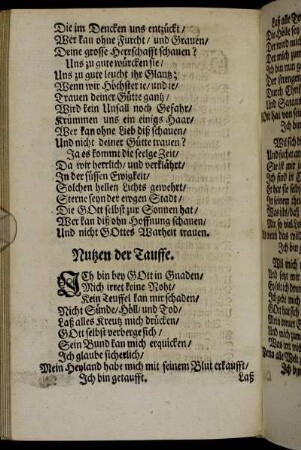 Die im Dencken uns entzückt/
Wer kan ohne Furcht/ und Grauen/
Deine grosse Herrschafft schauen?
Uns zu gute würcken sie/
Uns zu gute leucht ihr Glantz;
Wenn wir Höchster ie/ und ie/
Trauen deiner Güte gantz/
Wird kein Unfall noch Gefahr/
Krümmen uns ein einigs Haar/
Wer kan ohne Lieb diß schauen/
Und nicht deiner Güte trauen?
Ja es komt die seelge Zeit/
Da wir herrlich/ und verklährt/
In der süssen Ewigkeit/
Solchen hellen Lichts gewehrt/
Sterne seyn der ewgen Stadt/
Die GOtt selbst zur Sonnen hat/
Wer kan diß ohn Hoffnung schauen/
Und nicht GOttes Warheit trauen.
Nutzen der Tauffe.
ICh bin bey GOtt in Gnaden/
Mich irret keine Noht/
Kein Teuffel kan mir schaden/
Nicht Sünde/ Höll/ und Tod/
Laß alles Kreutz mich drücken/
GOtt selbst verberge sich/
Sein Bund kan mich erquicken/
Ich glaube sicherlich/
Mein Heyland habe mich mit seinem Blut erkaufft/
Ich bin getaufft.
Laß